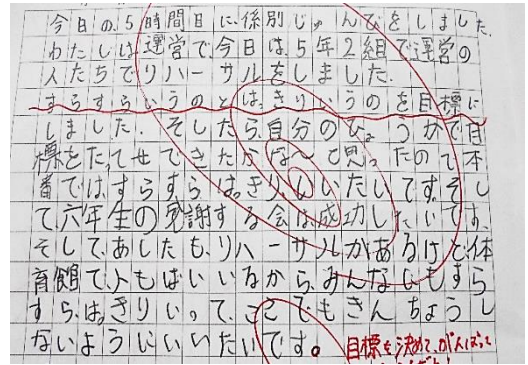 今日の、5時間目に、係別じゅんびをしました。
わたしは運営で、今日は、5年2組で、運営の
人たちでリハーサルをしました。
すらすらいうのと、はきりいうのを目標に
しました。そしたら、自分のひょうかで、目
標をたっせできたかな〜と思ったので、本
番では、すらすら、はっきりいいたいです。そし
て、六年生の発謝する会は、成功したいです。
そして、あしたも、リハーサルがあるけど、体
育館で、人もはいいるから、みんなにもすら
すら、はっきりいって、ここでもきんちょうし
ないようにいいたいです。
目標を決めて、がんばって